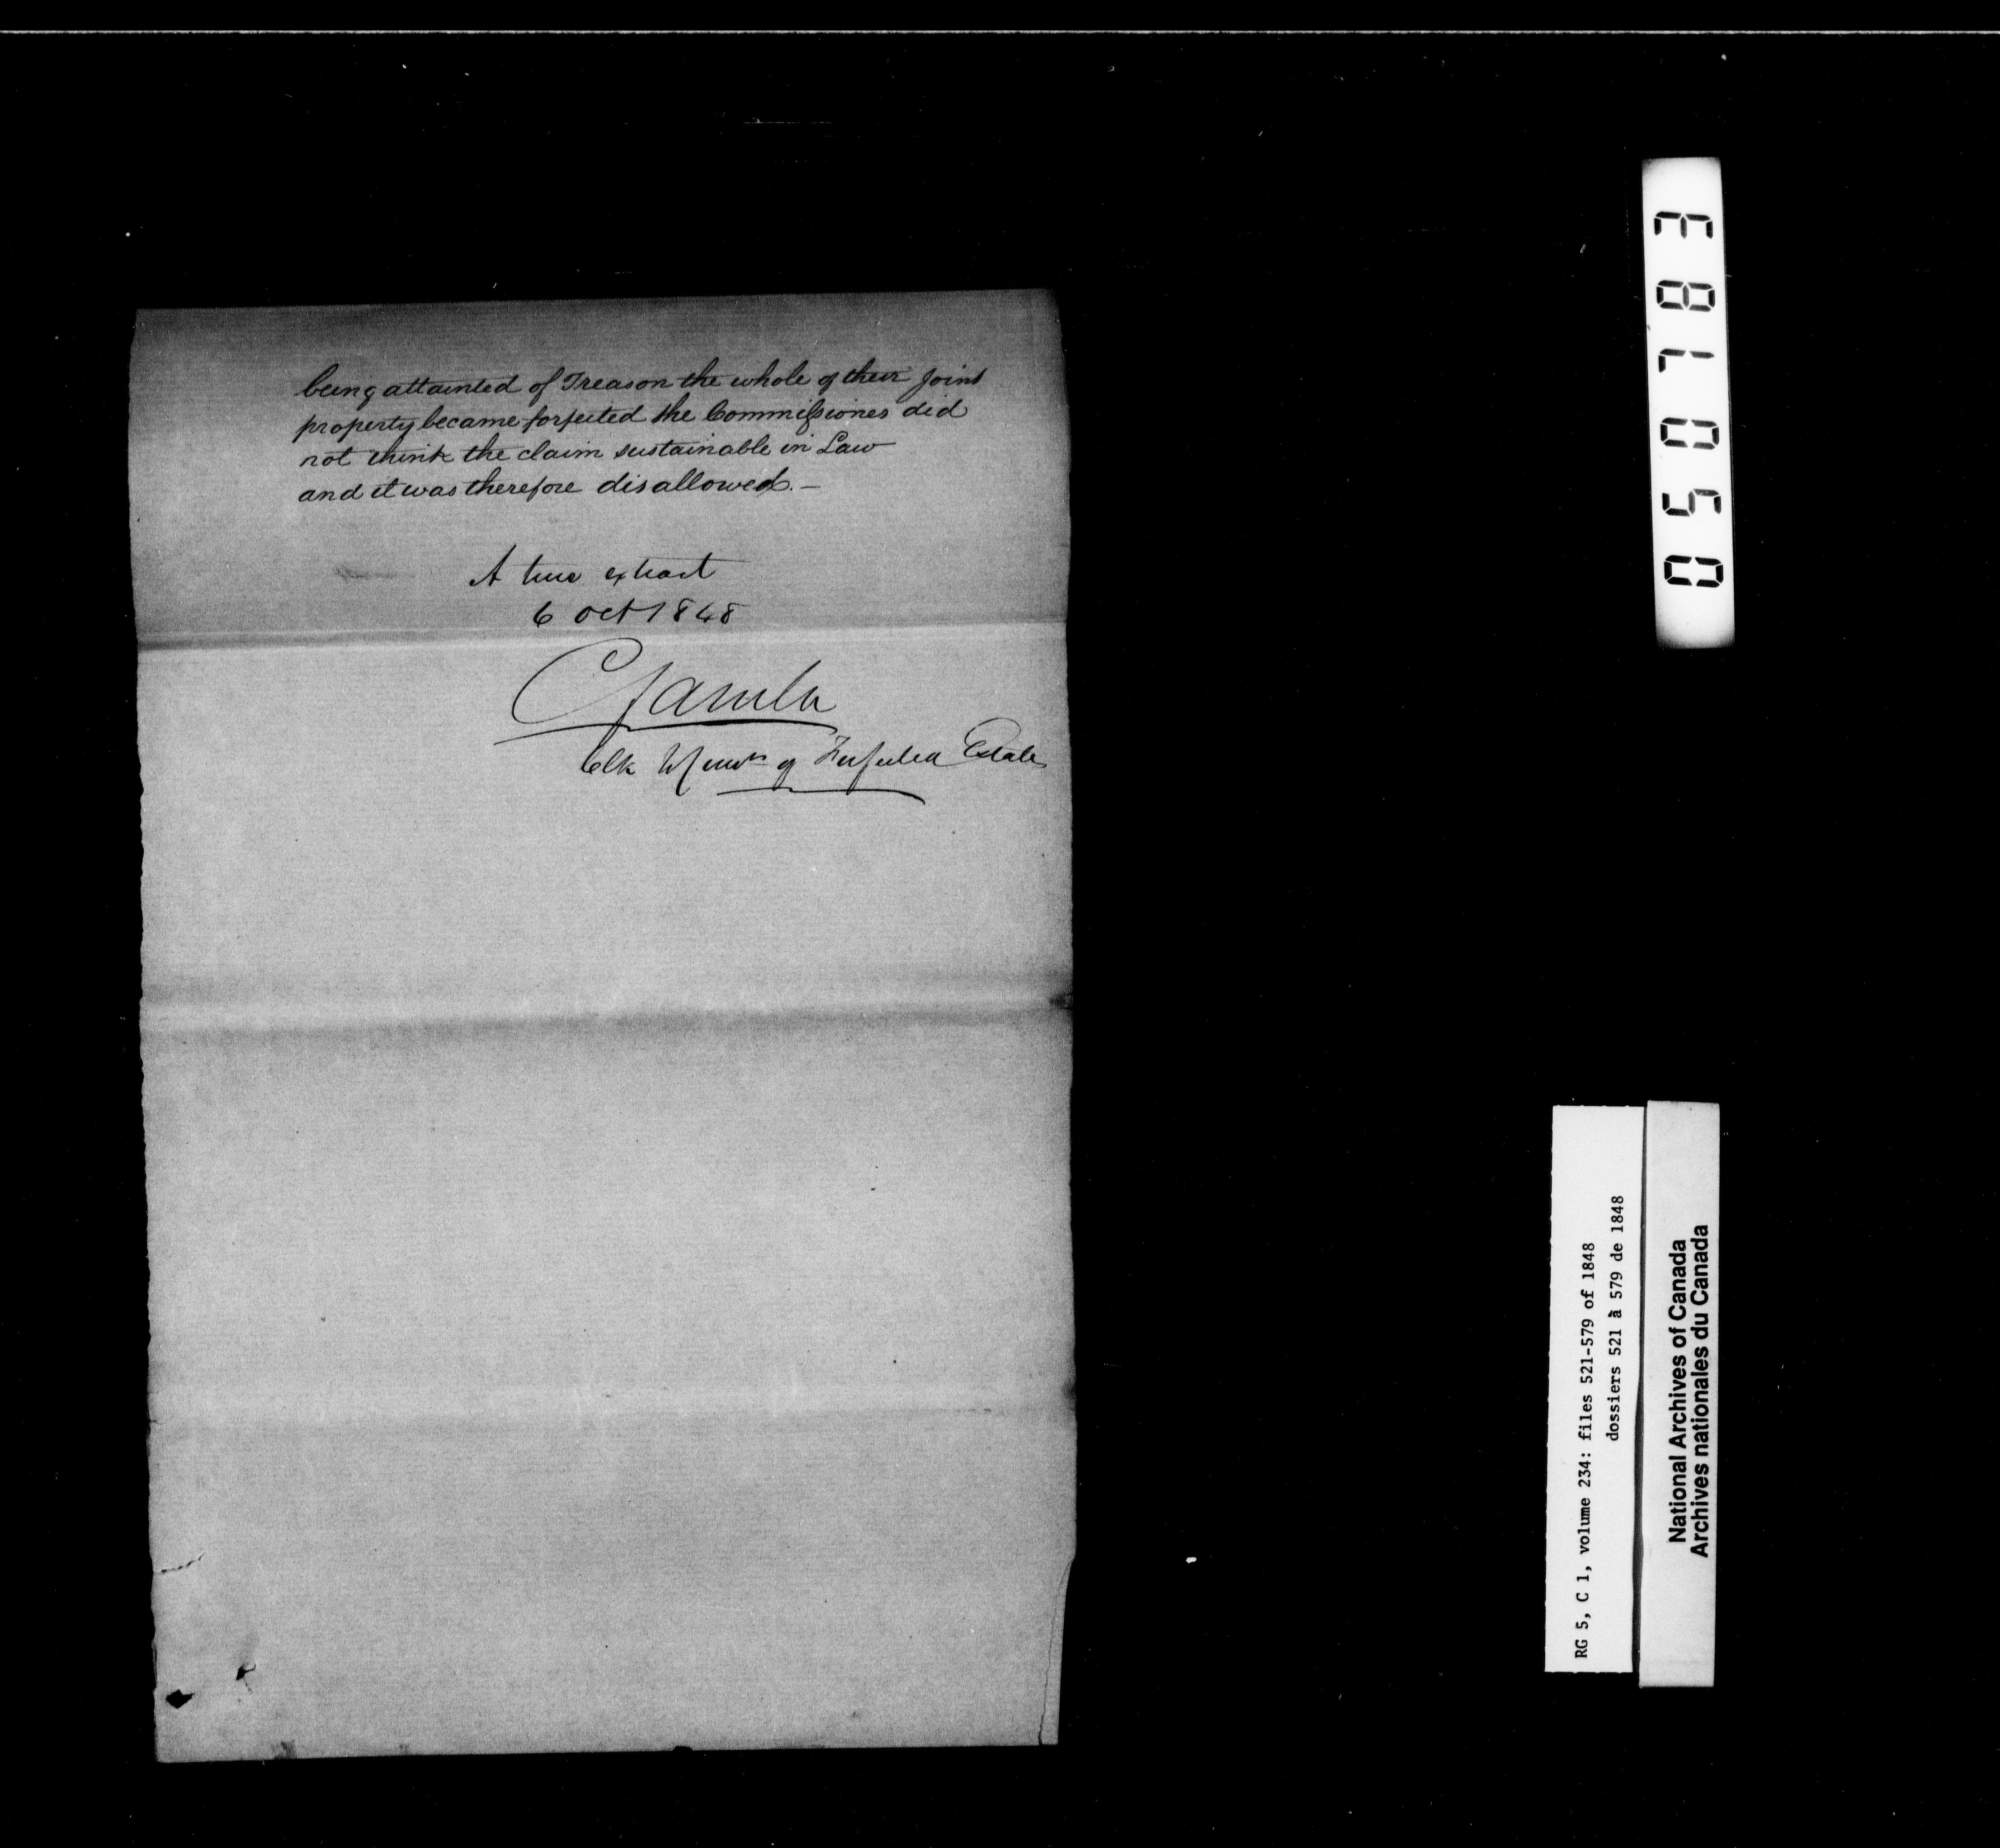 being attainted of Treason the whole of their joint
property became forfeited the Commissiones did
not think the claim sustainable in Law
and it was therefore disallowed. —
A true extract
6 Oct 1848
C Gamble
Clk of Forfeited Estates
050183
RG 5, C 1, volume 234: files 521-579 of 1848
dossiers 521 à 579 de 1848
National Archives of Canada
Archives nationales du Canada